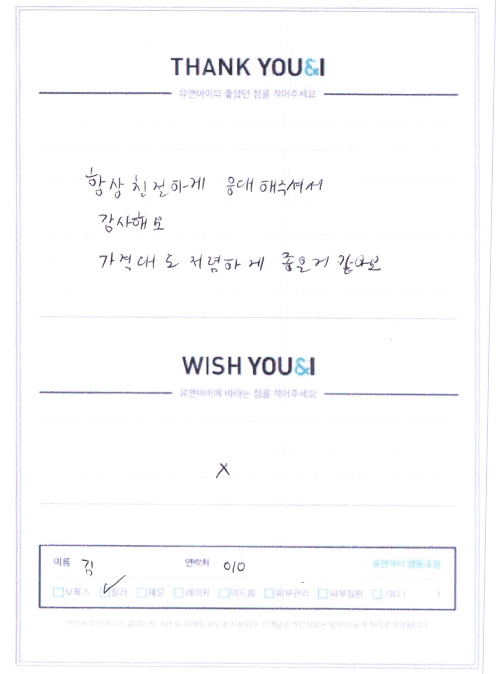 THANK YOU&I
유앤아이의 좋았던 점을 적어주세요
항상 친절하게 응대해주셔서
감사해요
가격대도 저렴하게 좋은거 같아요
WISH YOU&I
유앤아이에 바라는 점을 적어주세요
X
이름 김 연락처 010 유앤아이
보톡스 필러 제모 레이저 여드름 피부관리 피부질환 기타 ( )